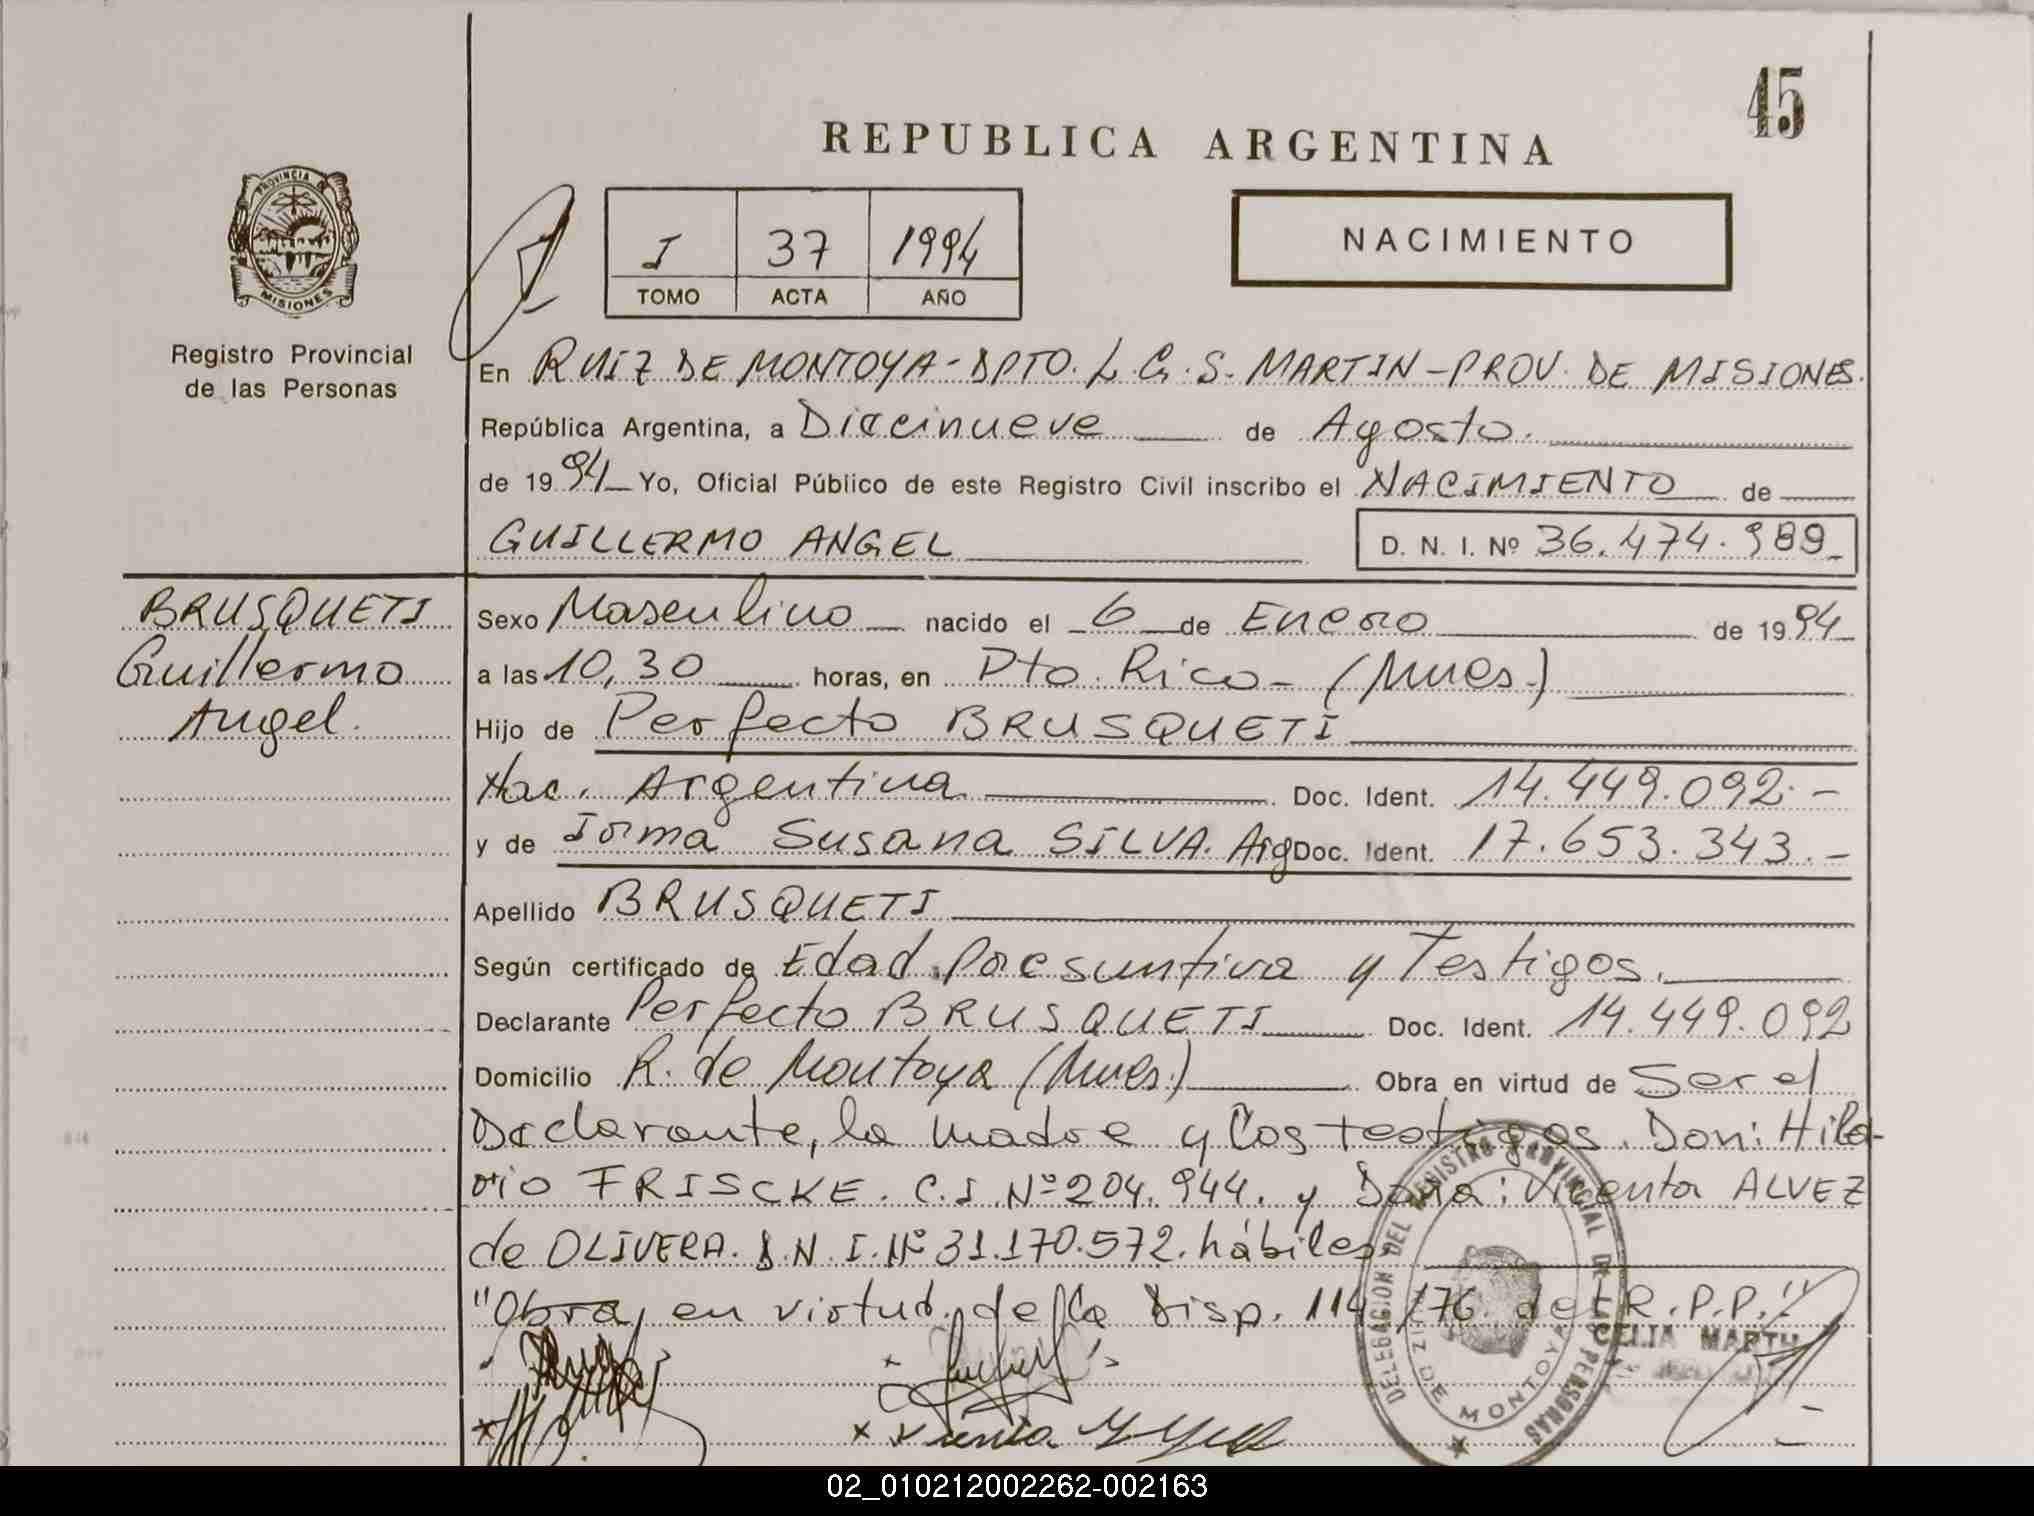 45
REPUBLICA ARGENTINA
PROVINCIA DE
MISIONES
Registro Provincial
de las Personas
I 37 1994
TOMO ACTA AÑO
NACIMIENTO
En RUIZ DE MONTOYA-DPTO. L.G.S. MARTIN-PROV. DE MISIONES.
República Argentina, a Diecinueve de Agosto.
de 1994 Yo, Oficial Público de este Registro Civil inscribo el NACIMIENTO de
GUILLERMO ANGEL D. N. I. Nº 36.474.989
BRUSQUETI
Guillermo
Angel.
Sexo Masculino nacido el 6 de Enero de 1994
a las 10,30 horas, en Pto. Rico- (Mnes.)
Hijo de Perfecto BRUSQUETI
Nac. Argentina Doc. Ident. 14.449.092.-
y de Irma Susana SILVA. Arg Doc. Ident. 17.653.343.-
Apellido BRUSQUETI
Según certificado de Edad Presuntiva y Testigos.
Declarante Perfecto BRUSQUETI Doc. Ident. 14.449.092
Domicilio R. de Montoya (Mnes.) Obra en virtud de Ser el
Declarante, la madre y los testigos. Don: Hila-
rio FRISCKE. C.I. Nº 204.944. y Doña: Vicenta ALVEZ
de OLIVERA. D.N.I. Nº 31.170.572. hábiles.
"Obra, en virtud de la Disp. 114/76 del R.P.P."
DELEGACION DEL REGISTRO PROVINCIAL DE LAS PERSONAS
RUIZ DE MONTOYA
CELIA MARTH
02_010212002262-002163